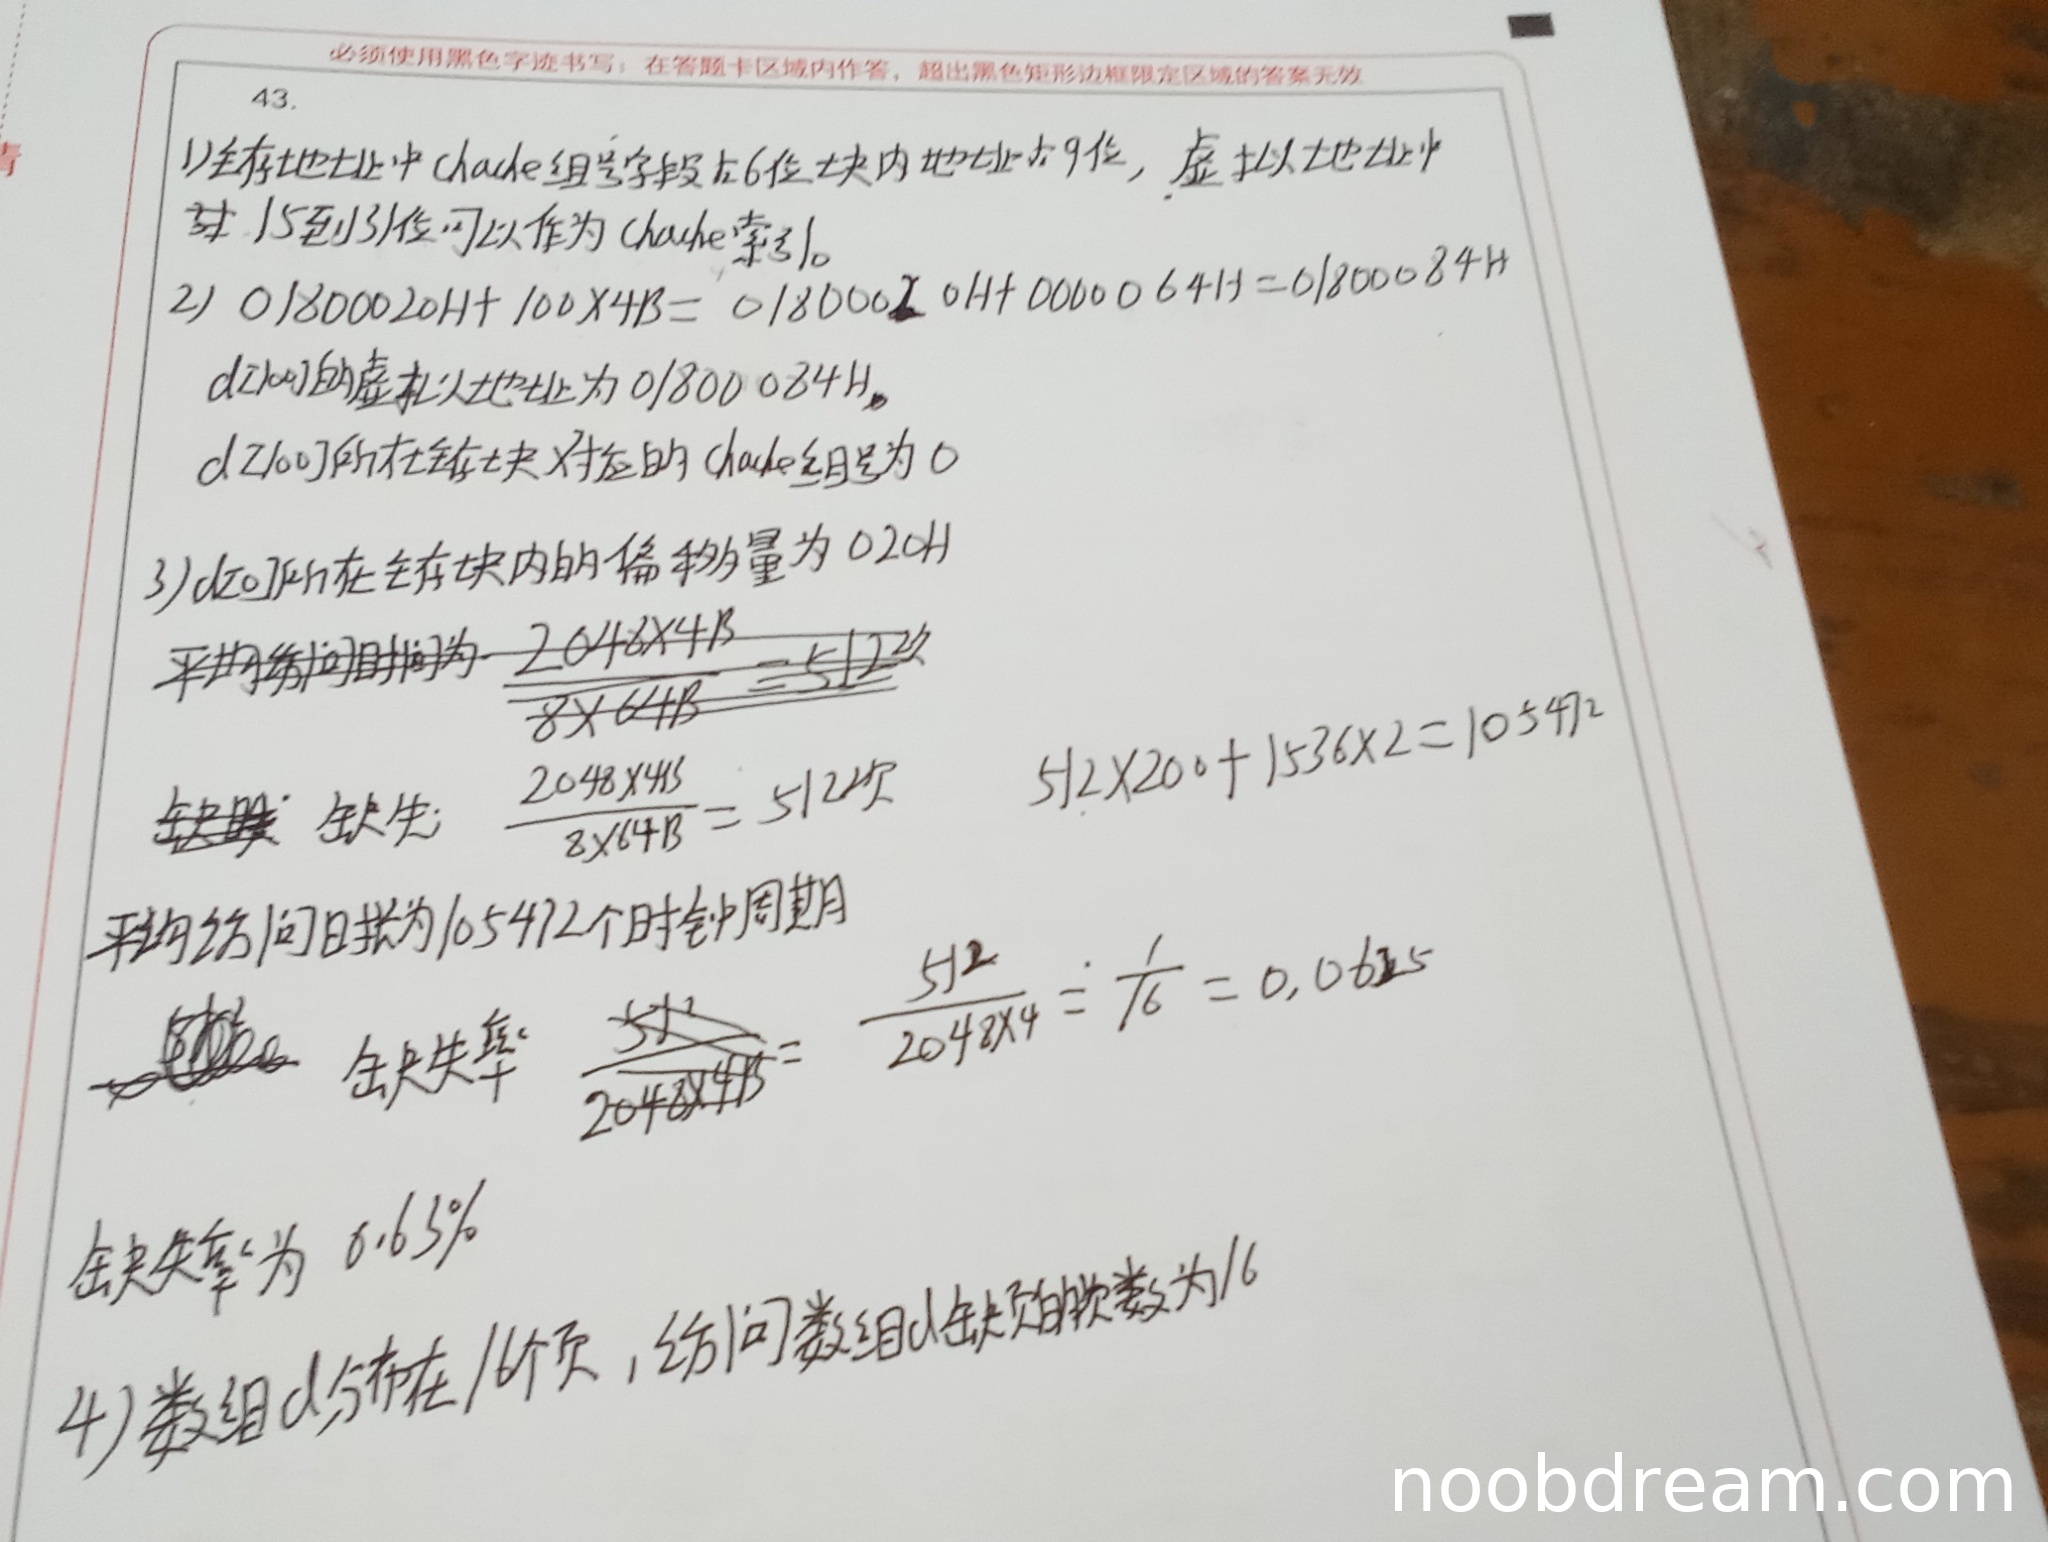 必须使用黑色字迹书写；在答题卡区域内作答，超出黑色矩形边框限定区域的答案无效
43.
1)主存地址中Chache组号字段占6位块内地址占9位，虚拟地址中
15到31位可以作为Chache索引。
2) 01800020H+100×4B= 01800020H+0000064H=01800084H
d[100]的虚拟地址为01800084H。
d[100]所在主存块对应的Chache组号为0
3)d[0]所在主存块内的偏移量为020H
平均访问时间为 2048×4B / 8×64B =512次
缺失: 2048×4B / 8×64B = 512次 512×200+1536×2=105472
平均访问时报为105472个时钟周期
缺失率 512 / 2048×4B = 512 / 2048×4 = 1/16 = 0.0625
缺失率为 0.63%
4)数组d分布在16个页，访问数组d缺页的次数为16
noobdream.com